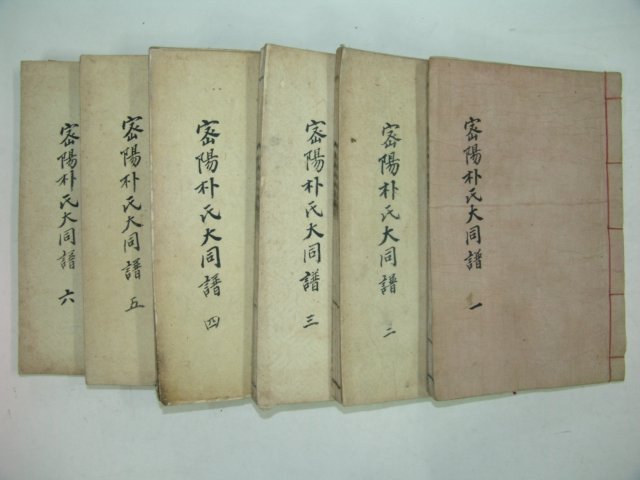 密陽朴氏大同譜 一
密陽朴氏大同譜 二
密陽朴氏大同譜 三
密陽朴氏大同譜 四
密陽朴氏大同譜 五
密陽朴氏大同譜 六